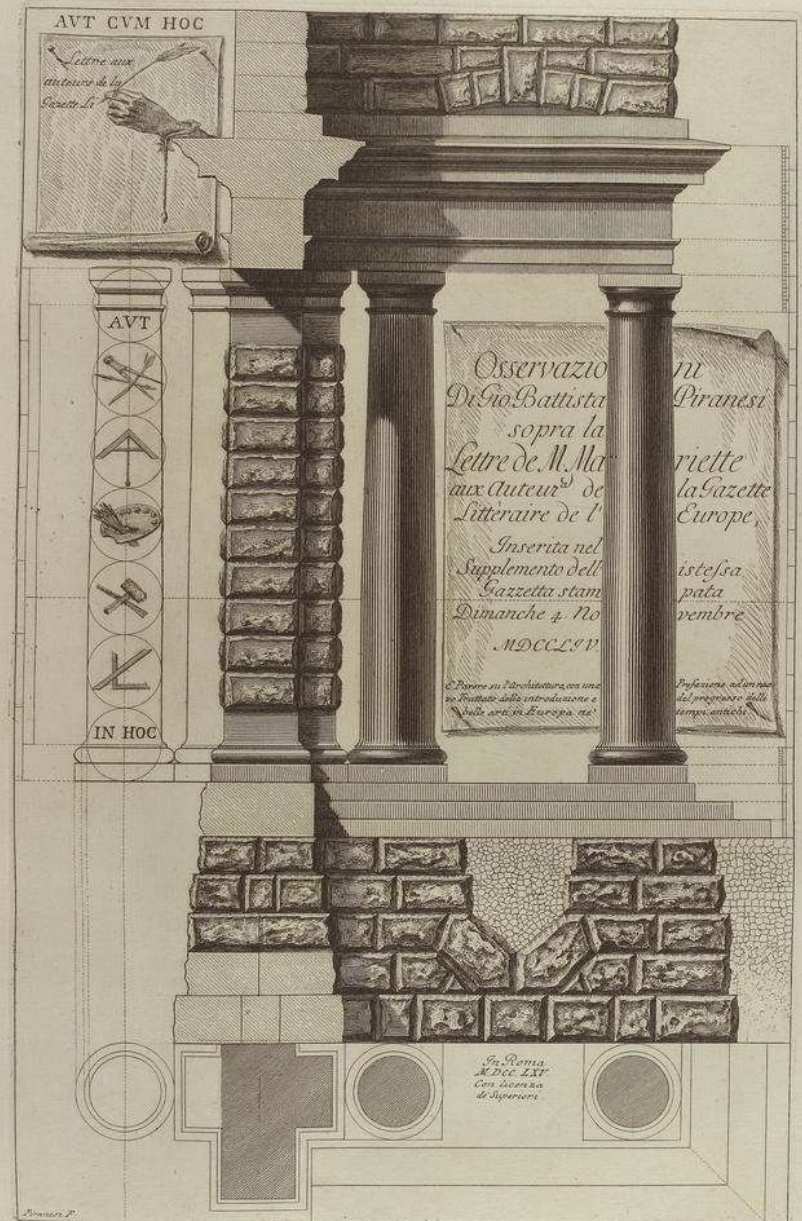 AVT CVM HOC
Lettre aux
auteurs de la
Gazette Li
AVT
IN HOC
Osservazioni
Di Gio. Battista Piranesi
sopra la
Lettre de M. Mariette
aux Auteurs de la Gazette
Littéraire de l' Europe,
Inserita nel
Supplemento dell' istessa
Gazzetta stampata
Dimanche 4. Novembre
MDCCLIV
E Parere su l'Architettura, con una Prefazione ad un nuo
vo Trattato della introduzione e del progresso delle
belle arti in Europa ne' tempi antichi
In Roma
M.DCC.LXV.
Con licenza
de' Superiori.
Piranesi F.